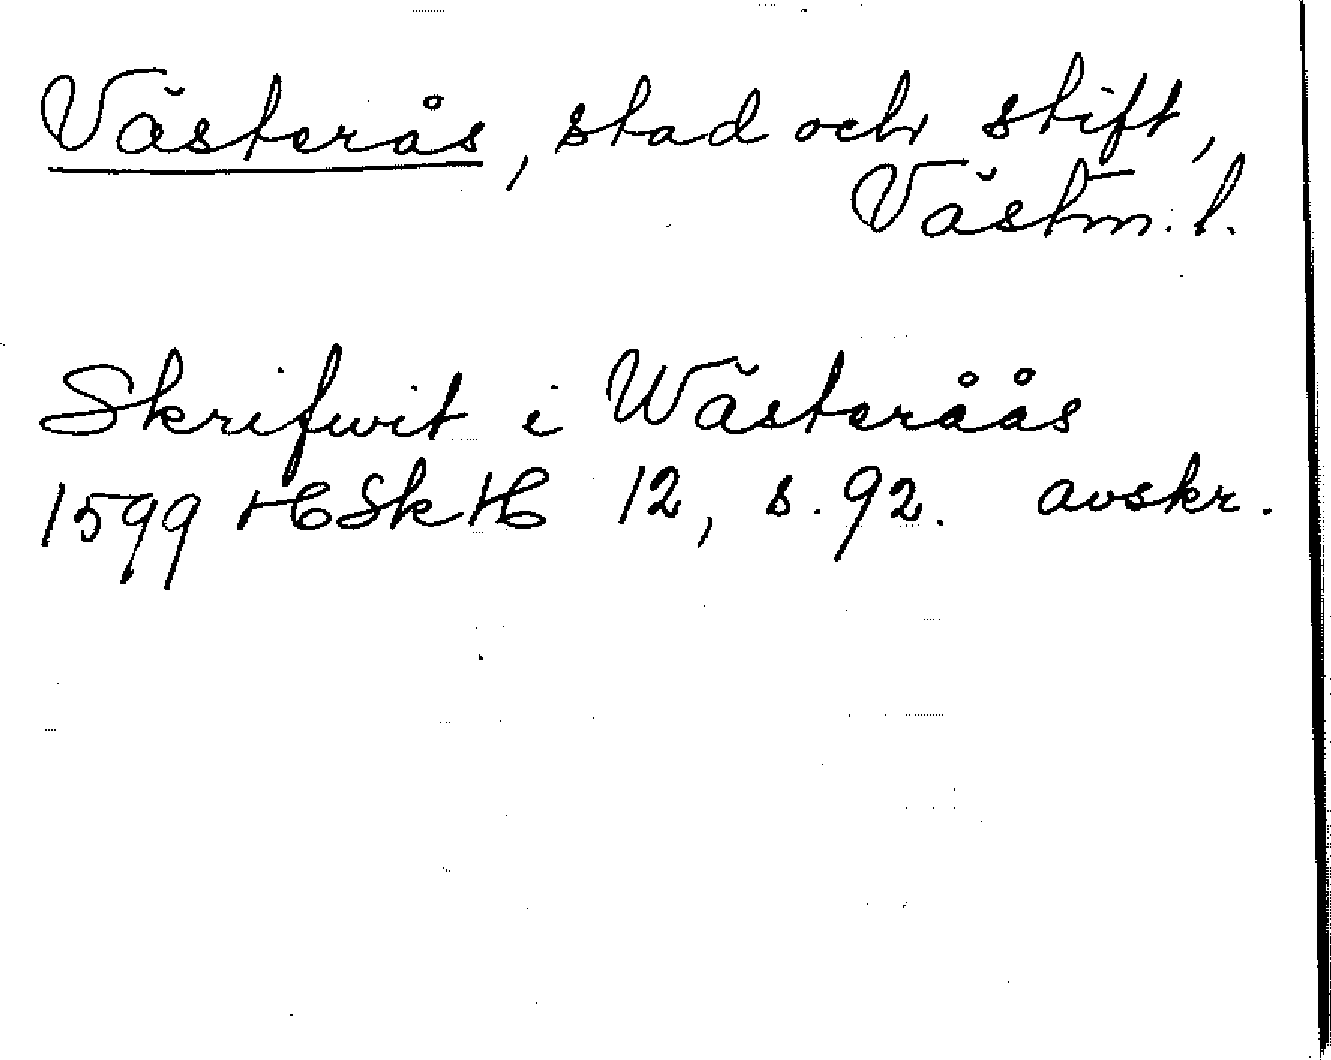 Västerås, stad och stift,
Västm. l.
Skrifwit i Wästeråås
1599 HSkH 12, s. 92. avskr.